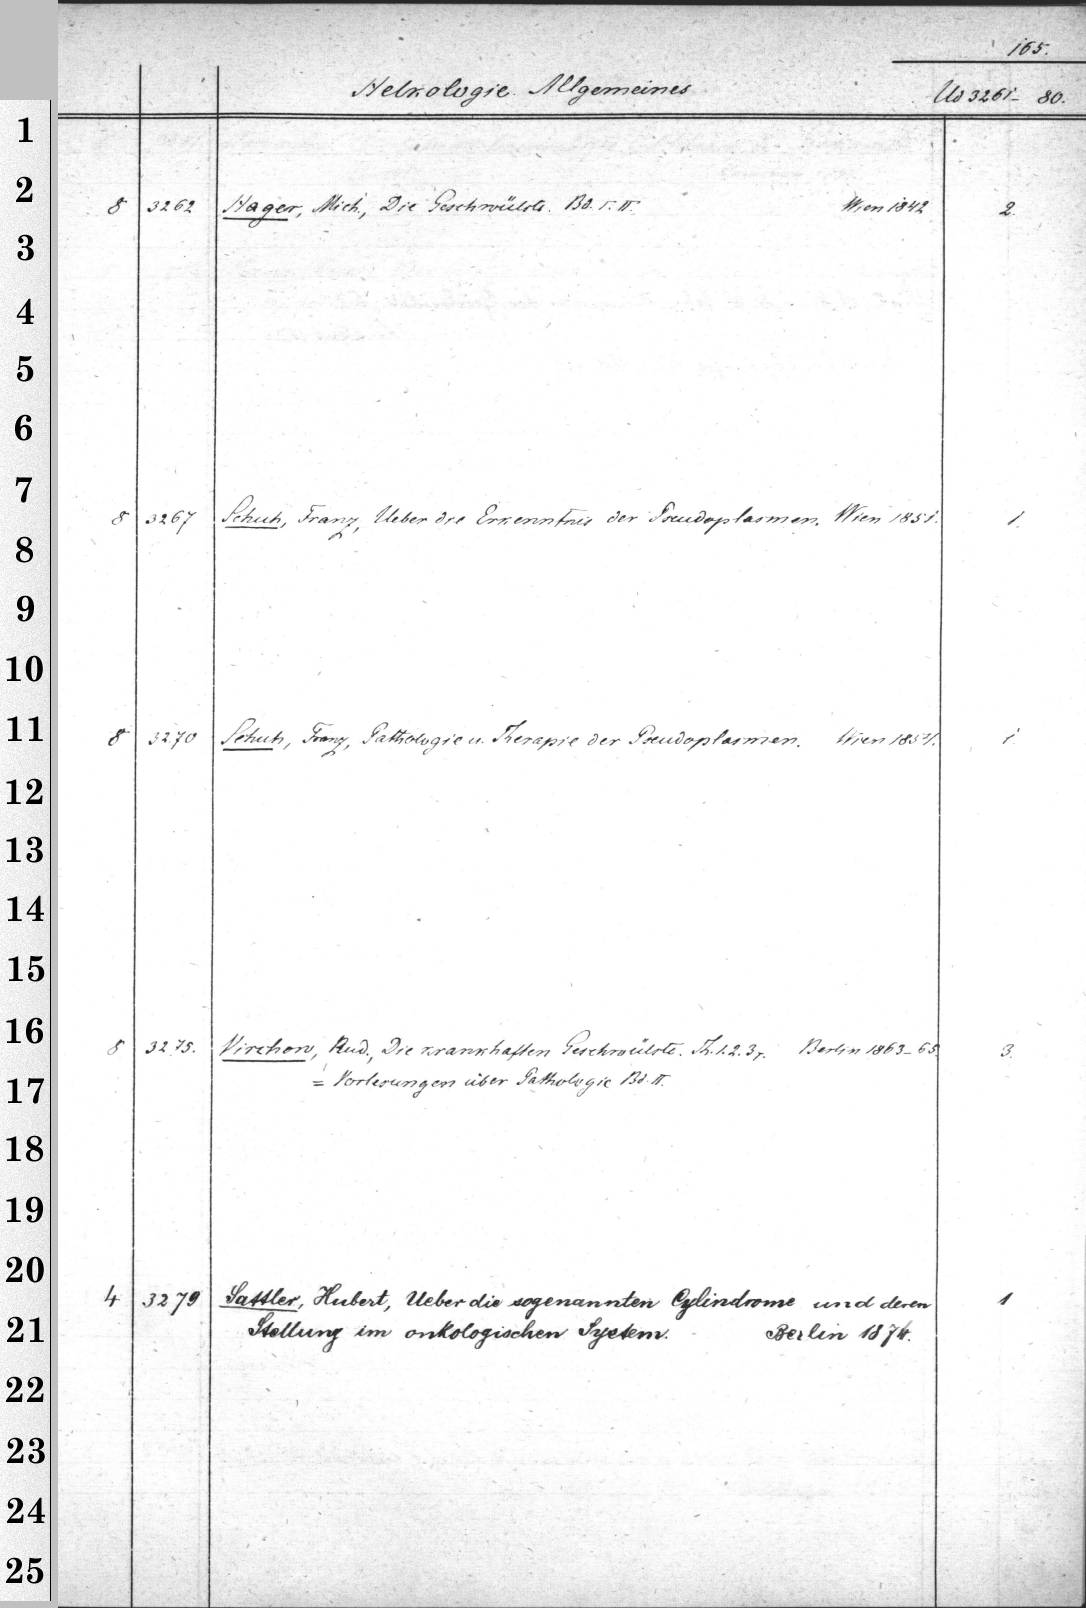 165.
Helkologie. Allgemeines
Ud 3261- 80.
1
2
8 3262 Hager, Mich., Die Geschwülste. Bd. I. II. Wien 1842 2.
3
4
5
6
7
8 3267 Schuh, Franz, Ueber die Erkenntnis der Pseudoplasmen. Wien 1851. 1.
8
9
10
11
8 3270 Schuh, Franz, Pathologie u. Therapie der Pseudoplasmen. Wien 1854. 1
12
13
14
15
16
8 3275. Virchow, Rud., Die krankhaften Geschwülste. Th. 1. 2. 3, Berlin 1863-65 3.
17
= Vorlesungen über Pathologie Bd. II.
18
19
20
4 3279 Sattler, Hubert, Ueber die sogenannten Cylindrome und deren 1
21
Stellung im onkologischen System. Berlin 1874.
22
23
24
25